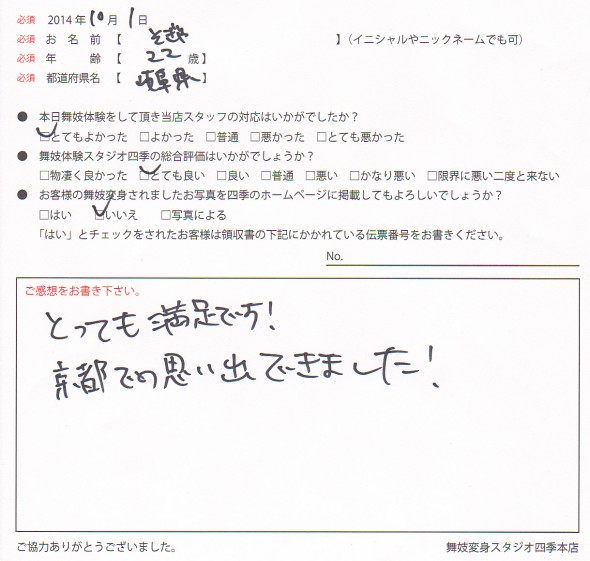 必須 2014年10月1日
必須 お名前【 】(イニシャルやニックネームでも可)
必須 年齢【 22 歳】
必須 都道府県名【 岐阜県 】
● 本日舞妓体験をして頂き当店スタッフの対応はいかがでしたか?
□とてもよかった □よかった □普通 □悪かった □とても悪かった
● 舞妓体験スタジオ四季の総合評価はいかがでしょうか?
□物凄く良かった □とても良い □良い □普通 □悪い □かなり悪い □限界に悪い二度と来ない
● お客様の舞妓変身されましたお写真を四季のホームページに掲載してもよろしいでしょうか?
□はい □いいえ □写真による
「はい」とチェックをされたお客様は領収書の下記にかかれている伝票番号をお書きください。
No.
ご感想をお書き下さい。
とっても満足です!
京都での思い出できました!
ご協力ありがとうございました。 舞妓変身スタジオ四季本店